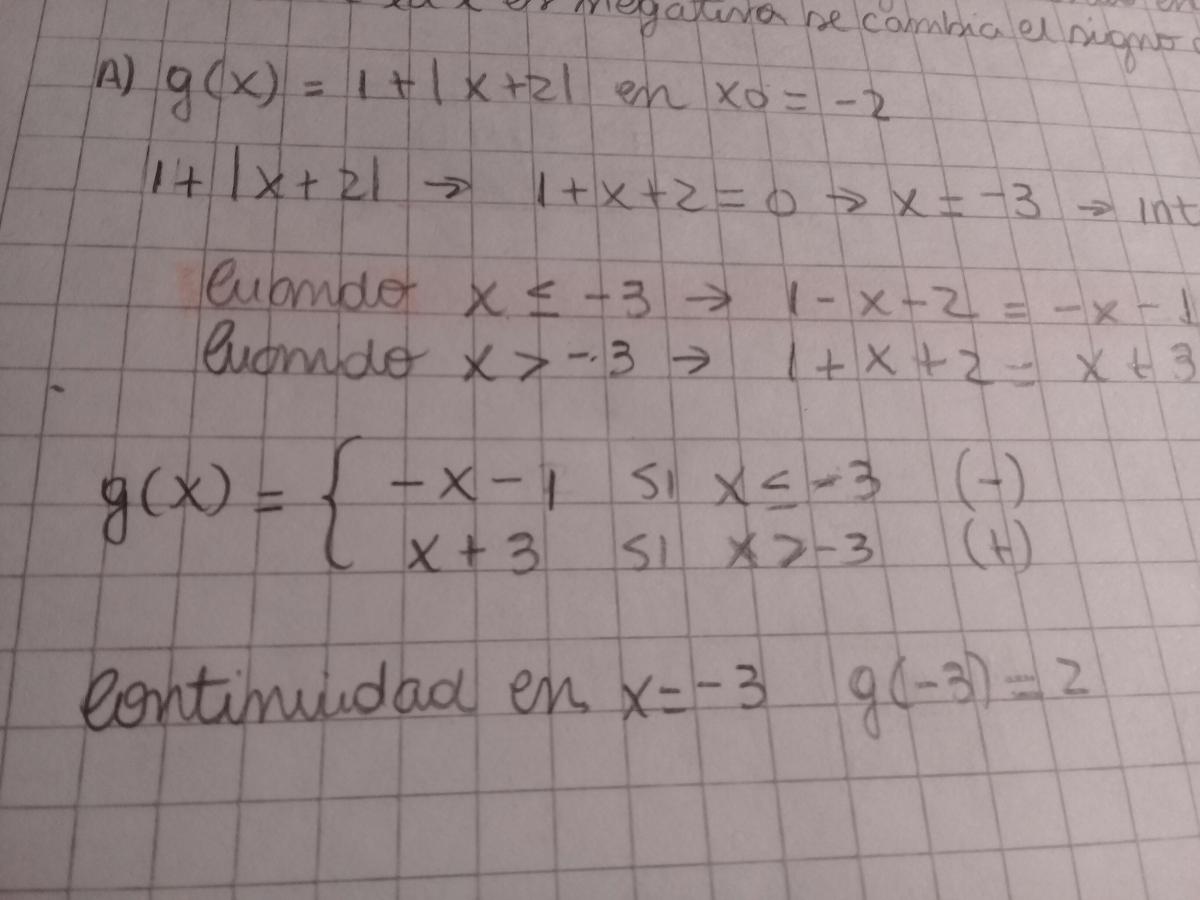 es negativa se cambia el signo
A) g(x) = 1+|x+2| en x0 = -2
1+|x+2| → 1+x+2=0 → x=-3 → int
Cuando x ≤ -3 → 1-x-2 = -x-1
Cuando x > -3 → 1+x+2 = x+3
g(x) = { -x-1 si x ≤ -3 (-)
x+3 si x > -3 (+)
Continuidad en x=-3 g(-3)=2